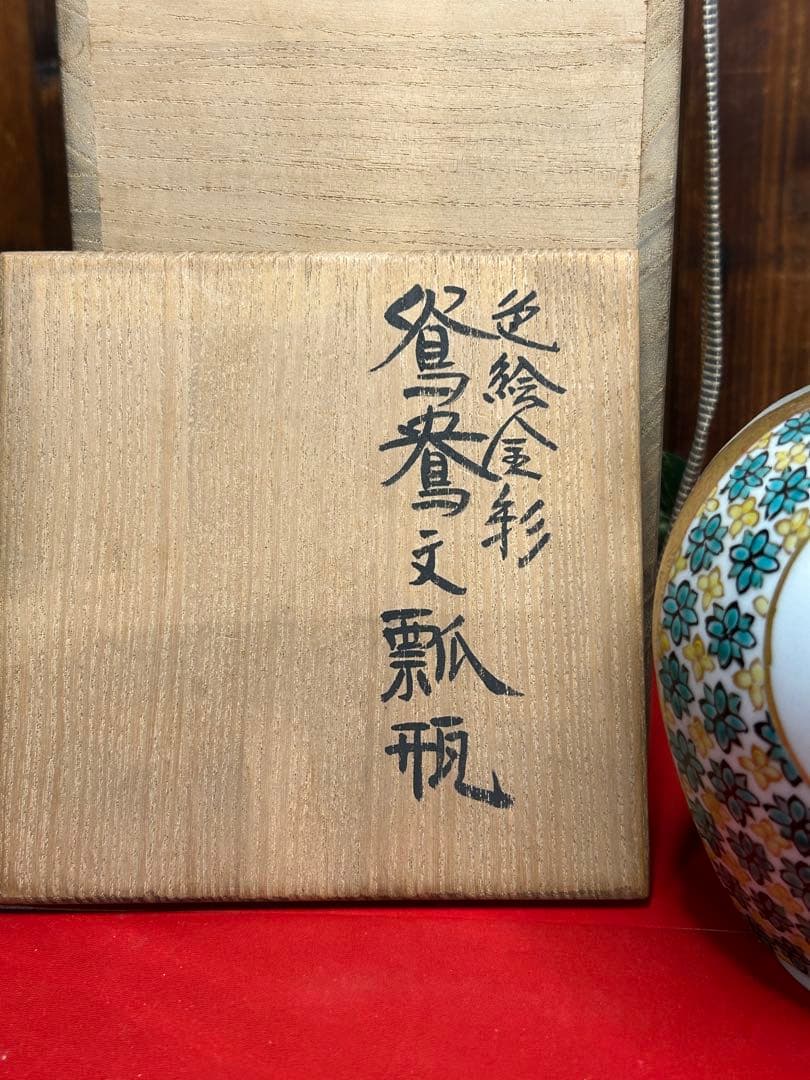 色絵金彩
鴛鴦文瓢瓶